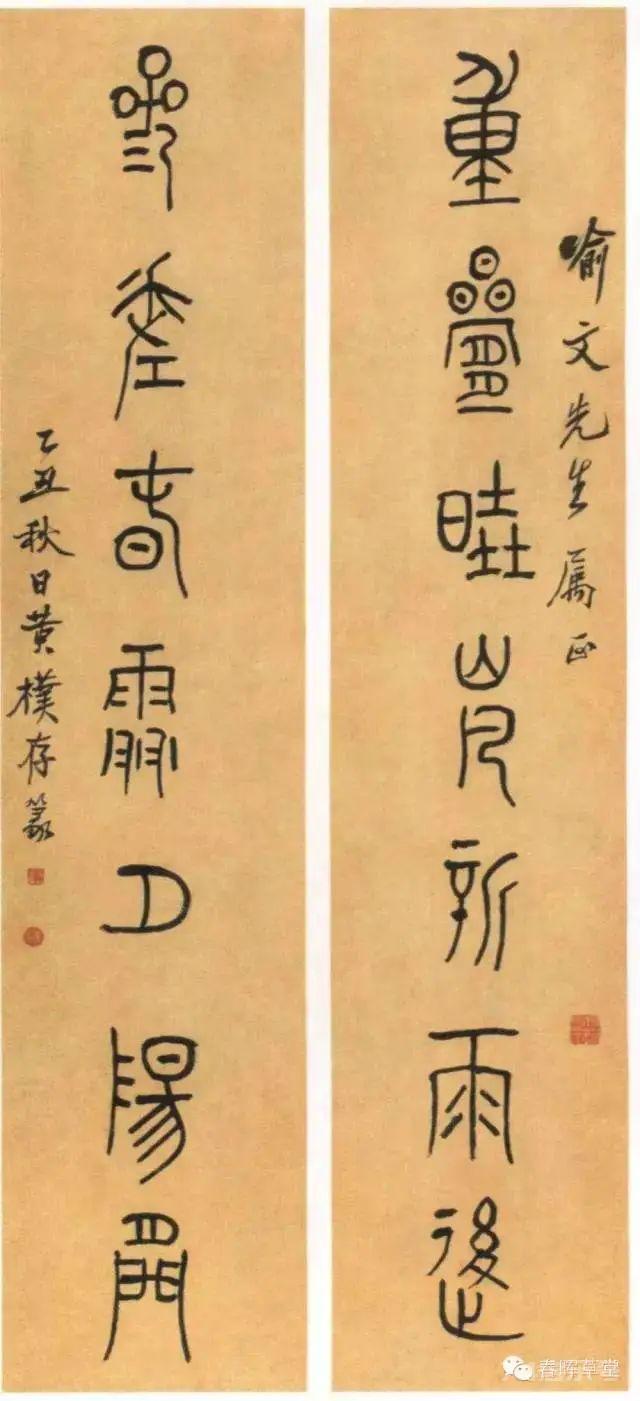 喻文先生屬正
重疊曉嵐新雨後
參差春雪夕陽間
乙丑秋日黃樸存篆
春晖草堂